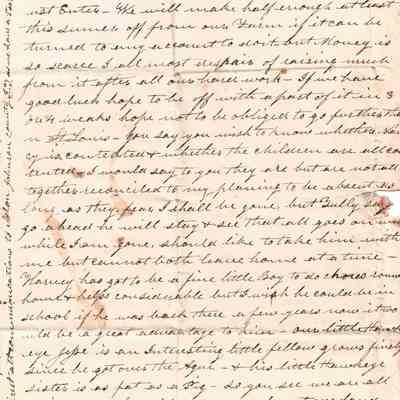 not Enter - We will make half enough at least
this summer off from our Farm if it can be
turned to any account to do it but Money is
so scarce I all most despair of raising much
from it after all our hard work - If we have
good luck hope to be off with a part of it in 3
or 4 weaks hope not to be obliged to go further than
St Louis - you say you wish to know whether
ry is contented & whether the children are all con
tented, I would say to you they are but are not all
together reconciled to my planing to be absent so
long as they fear I shall be gone. but Gully says
go ahead he will stay & see that all goes on
while I am gone, should like to take him with
me but cannot both leave home at a time -
Harvey has got to be a fine little Boy to do chores round
home & helps considerable but I wish he could be in
school if he was back there a few years now it wo
uld be a great advantage to him - our little Hawk
eye Jesse is an Interesting little fellow grows finely
since he got over the Ague - & his little Hawkeye
sister is as fat as a Pig - so you see we are all